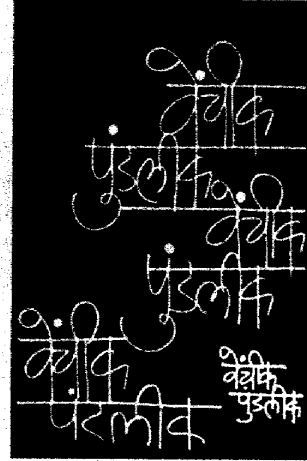 वेंचीक
पुंडलीक
वेंचीक
पुंडलीक
वेंचीक
पुंडलीक
वेंचीक
पुंडलीक